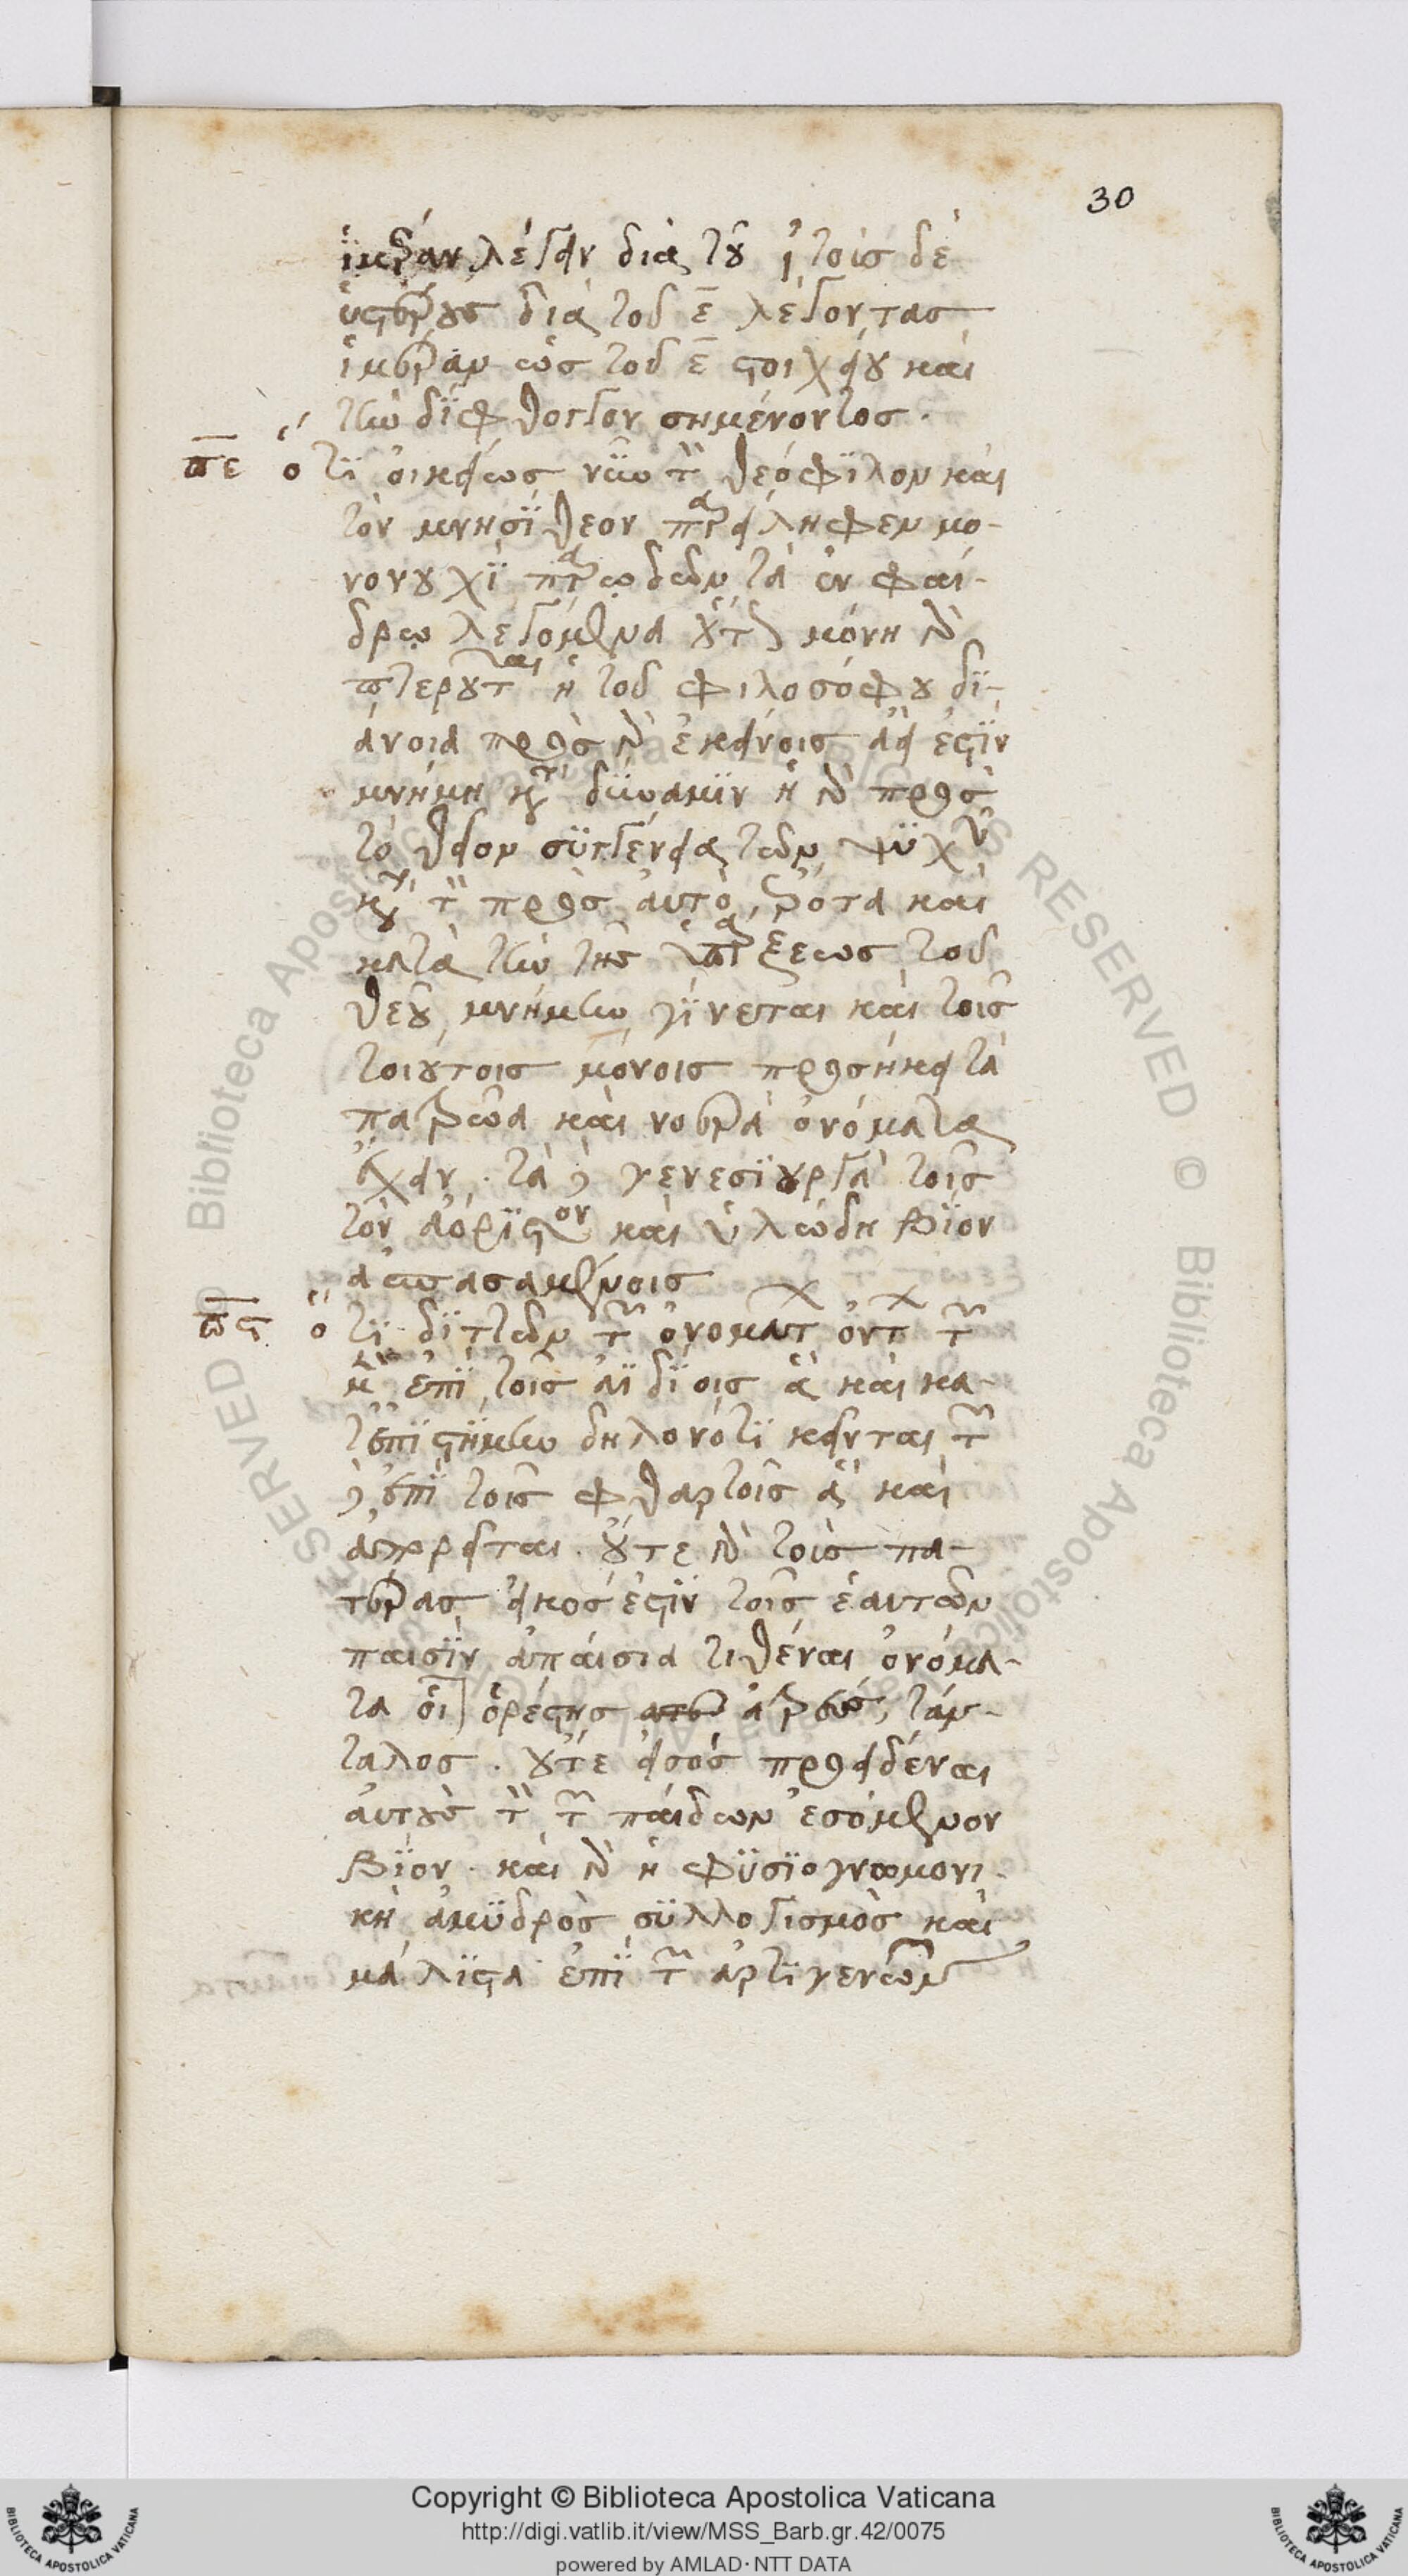 30
ἱμέραν λέγειν διὰ τοῦ ι τοῖς δὲ
ὑστέρους διὰ τοῦ ε λέγοντας
ἱμέραν ὡς τοῦ ε στοιχείου καὶ
τὴν δίφθογγον σημένοντος.
πε ὅτι οἰκείως νῦν τὸν θεόφιλον καὶ
τὸν μνησίθεον παρείληφεν μο-
νονουχὶ παρωδῶν τὰ ἐν φαί-
δρω λεγόμενα οὕτως μόνη γὰρ
πτεροῦται ἡ τοῦ φιλοσόφου δι-
άνοια πρὸς γὰρ ἐκείνοις ἀεὶ ἐστὶν
μνήμη κατὰ δύναμιν ἡ γὰρ πρὸς
τὸ θεῖον συγγένεια τῶν ψυχῶν
κατὰ τὸν πρὸς αὐτὸ ἔρωτα καὶ
κατὰ τὴν τῆς ὑπάρξεως τοῦ
θεοῦ μνήμην γίνεται καὶ τοῖς
τοιούτοις μόνοις προσήκει τὰ
πατρῶα καὶ νοερὰ ὀνόματα
ἔχειν. τὰ δὲ γενεσιουργὰ τοῖς
τὸν ἀόριστον καὶ ὑλώδη βίον
ἀσπασαμένοις
πς ὅτι διττῶν τῶν ὀνομάτων ὄντων τῶν
μὲν ἐπὶ τοῖς ἀϊδίοις ἃ καὶ κα-
τεπιστήμην δηλονότι κεῖνται τῶν
δὲ ἐπὶ τοῖς φθαρτοῖς ἃ καὶ
ἀπορεῖται. οὔτε γὰρ τοὶς πα-
τέρας εἰκός ἐστὶν τοῖς ἑαυτῶν
παισὶν ἀπαίσια τιθέναι ὀνόμα-
τα οἷον ὀρέστης ἀτρεύς, τάν-
ταλος. οὔτε εἰσὸς προειδέναι
αὐτοὺς τὸν τῶν παίδων ἐσόμενον
βίον. καὶ γὰρ ἡ φυσιογνωμονι-
κὴ ἀμυδρὸς συλλογισμὸς καὶ
μάλιστα ἐπὶ τῶν ἀρτιγενῶν
Copyright © Biblioteca Apostolica Vaticana
http://digi.vatlib.it/view/MSS_Barb.gr.42/0075
powered by AMLAD·NTT DATA